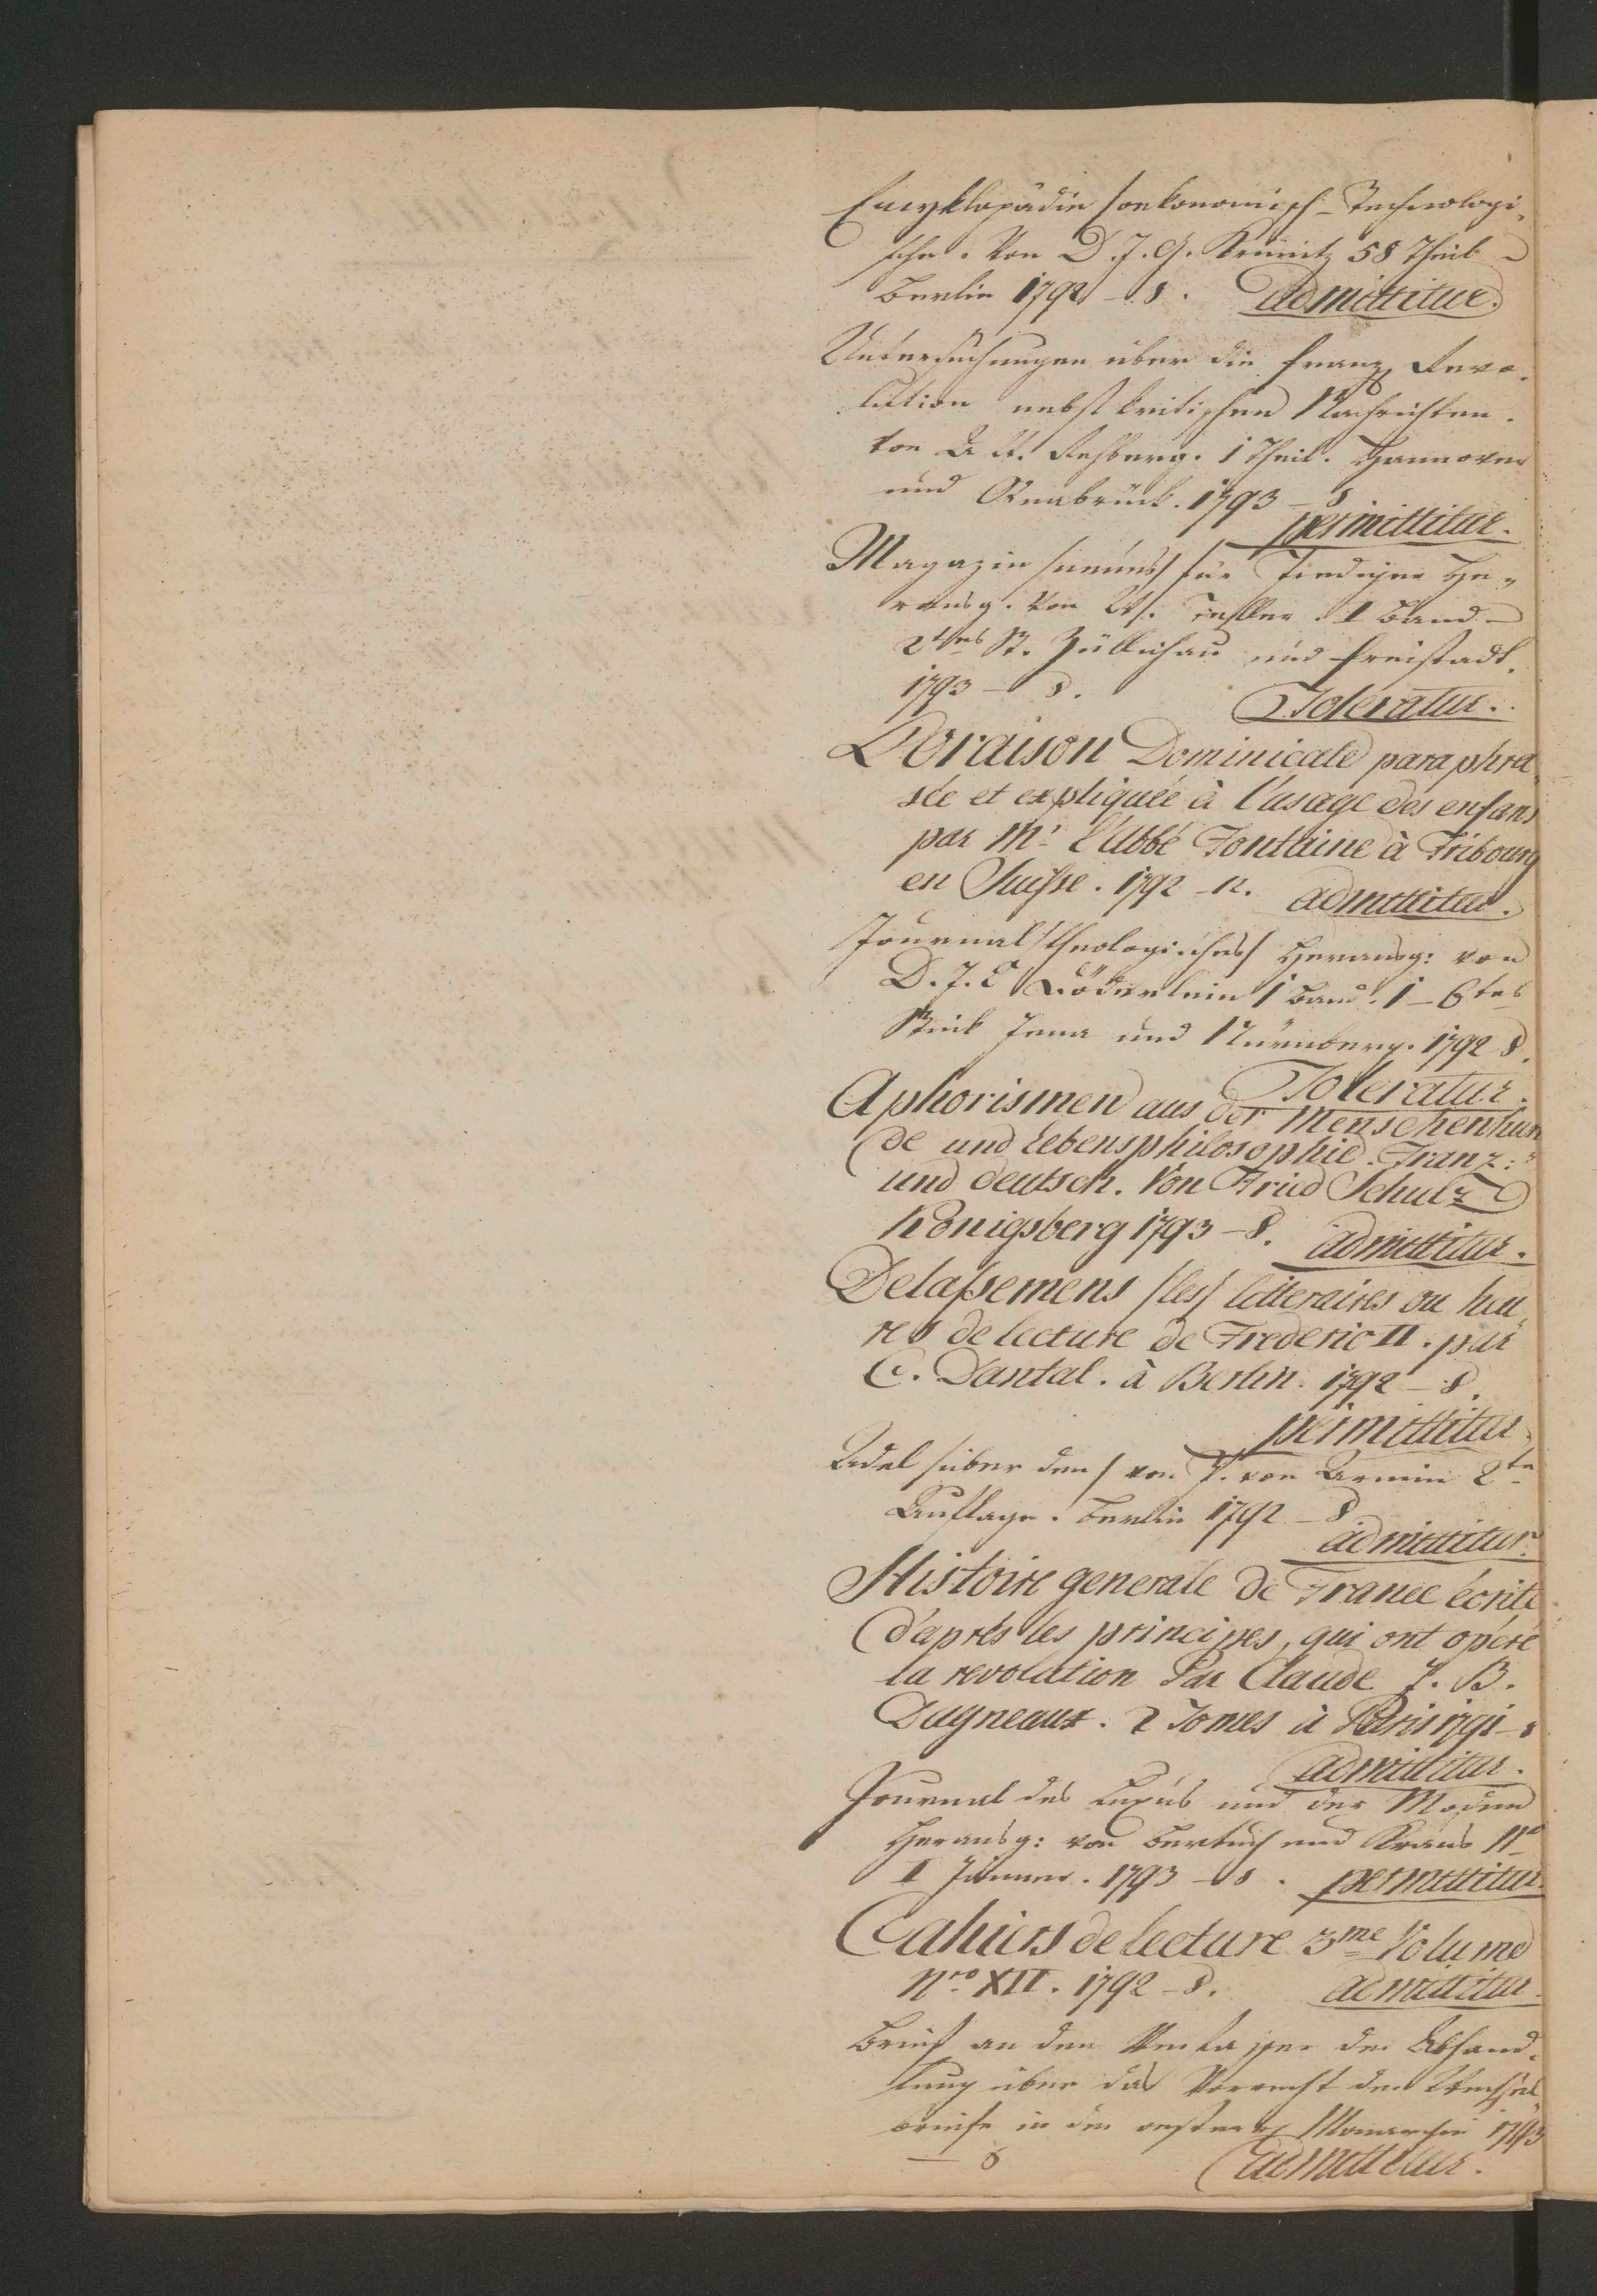 Encyklopädie /oekonomisch-Technologi-
sche. Von D. J. G. Krünitz 58 Theil
Berlin 1792 – 8. admittitur.
Untersuchungen über die franz. Revo-
lution nebst kritischen Nachrichten.
von A. W. Rehberg. 1 Theil. Hannover
und Osnabrück. 1793 – 8
permittitur.
Magazin /neues/ für Prediger He-
rausg. von W. A. Teller. I Band
2tes St. Züllichau und Freistadt.
1793 – 8.
Toleratur.
L'Oraison Dominicale paraphra
sée et expliquée à l'usage des enfans
par Mr. l'Abbé Fontaine à Fribourg
en Suisse. 1792 – 12. admittitur.
Journal /theologisches/ Herausg: von
D. J. C. Döderlein 1 Band. 1 – 6tes
Stück Jena und Nürnberg. 1792 8.
Toleratur.
Aphorismen aus der Menschenkun
de und Lebensphilosophie. Franz:
und deutsch. Von Fried Schulz
Königsberg 1793 – 8. admittitur.
Delassemens /les/ litteraires ou heu
res de lecture de Frederic II. par
C. Dantal. à Berlin. 1792 – 8.
permittitur.
Adel /über den/ von J. von Arnim 2te
Auflage. Berlin 1792 – 8
admittitur.
Histoire generale de France écrite
d'après les principes, qui ont opéré
la revolution Par Claude J. B.
Dagneaux. 2 Tomes à Paris 1791 – 8
admittitur.
Journal des Luxus und der Moden
Herausg: von Bertuch und Kraus
I Jänner. 1793 – 8. permittitur.
Cahiers de lecture 3me Volume
Nro. XII. 1792 – 8. admittitur.
Brief an den Verfasser der Abhand-
lung über das Vorrecht der Wechsel
briefe in der oester. Monarchie 1793
– 8
admittitur.